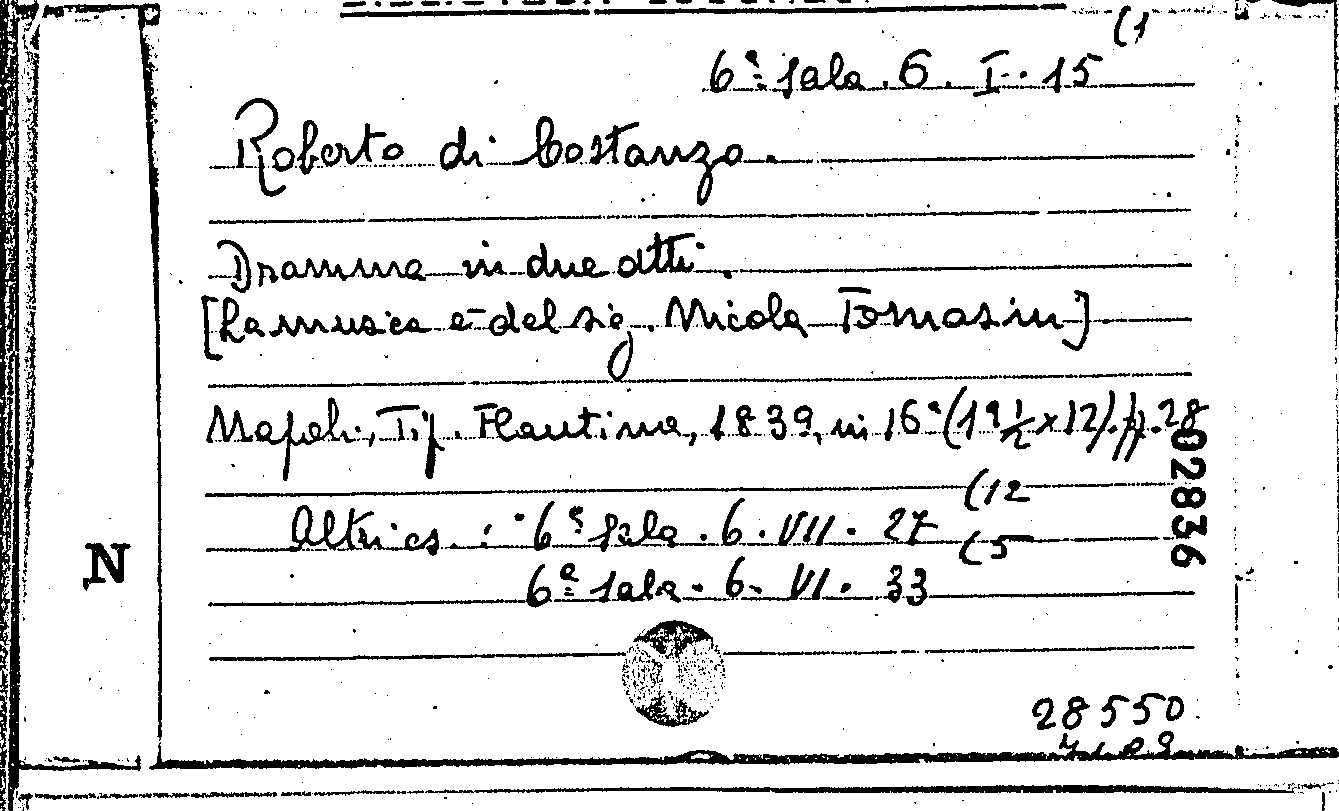 (1
6ª Sala. 6. I. 15
Roberto di Costanzo.
Dramma in due atti.
[La musica è del sig. Nicola Tomasin].
Napoli, Tip. Flautina, 1839, in 16° (19 1/2 x 12). pp. 28
Altri es. : 6ª Sala. 6. VII. 27 (12
6ª Sala. 6. VI. 33 (5
N
02836
28550